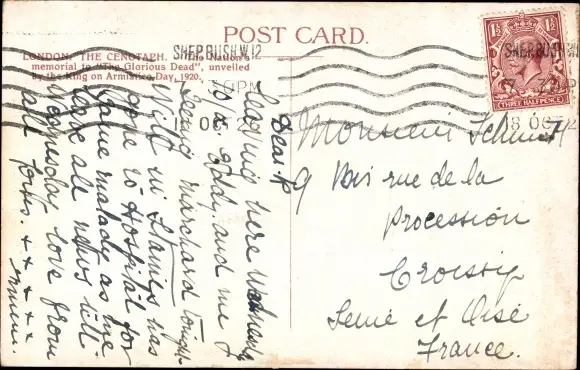 POST CARD.
LONDON. "THE CENOTAPH." The Nation's
memorial to "The Glorious Dead", unveiled
by the King on Armistice Day, 1920.
SHEP. BUSH. W.12
SHEP. BUSH. W
18 OCT
THREE HALFPENCE
Dear
leaving here Wednesday
Eddy and me
seeing Marchand tonight
Wild in Staines has
gone to Hospital for
same malady as me
leave all news till
Wednesday love from
all
x x x x
Monsieur Schmit
9 Bis rue de la
Procession
Croissy
Seine et Oise
France.